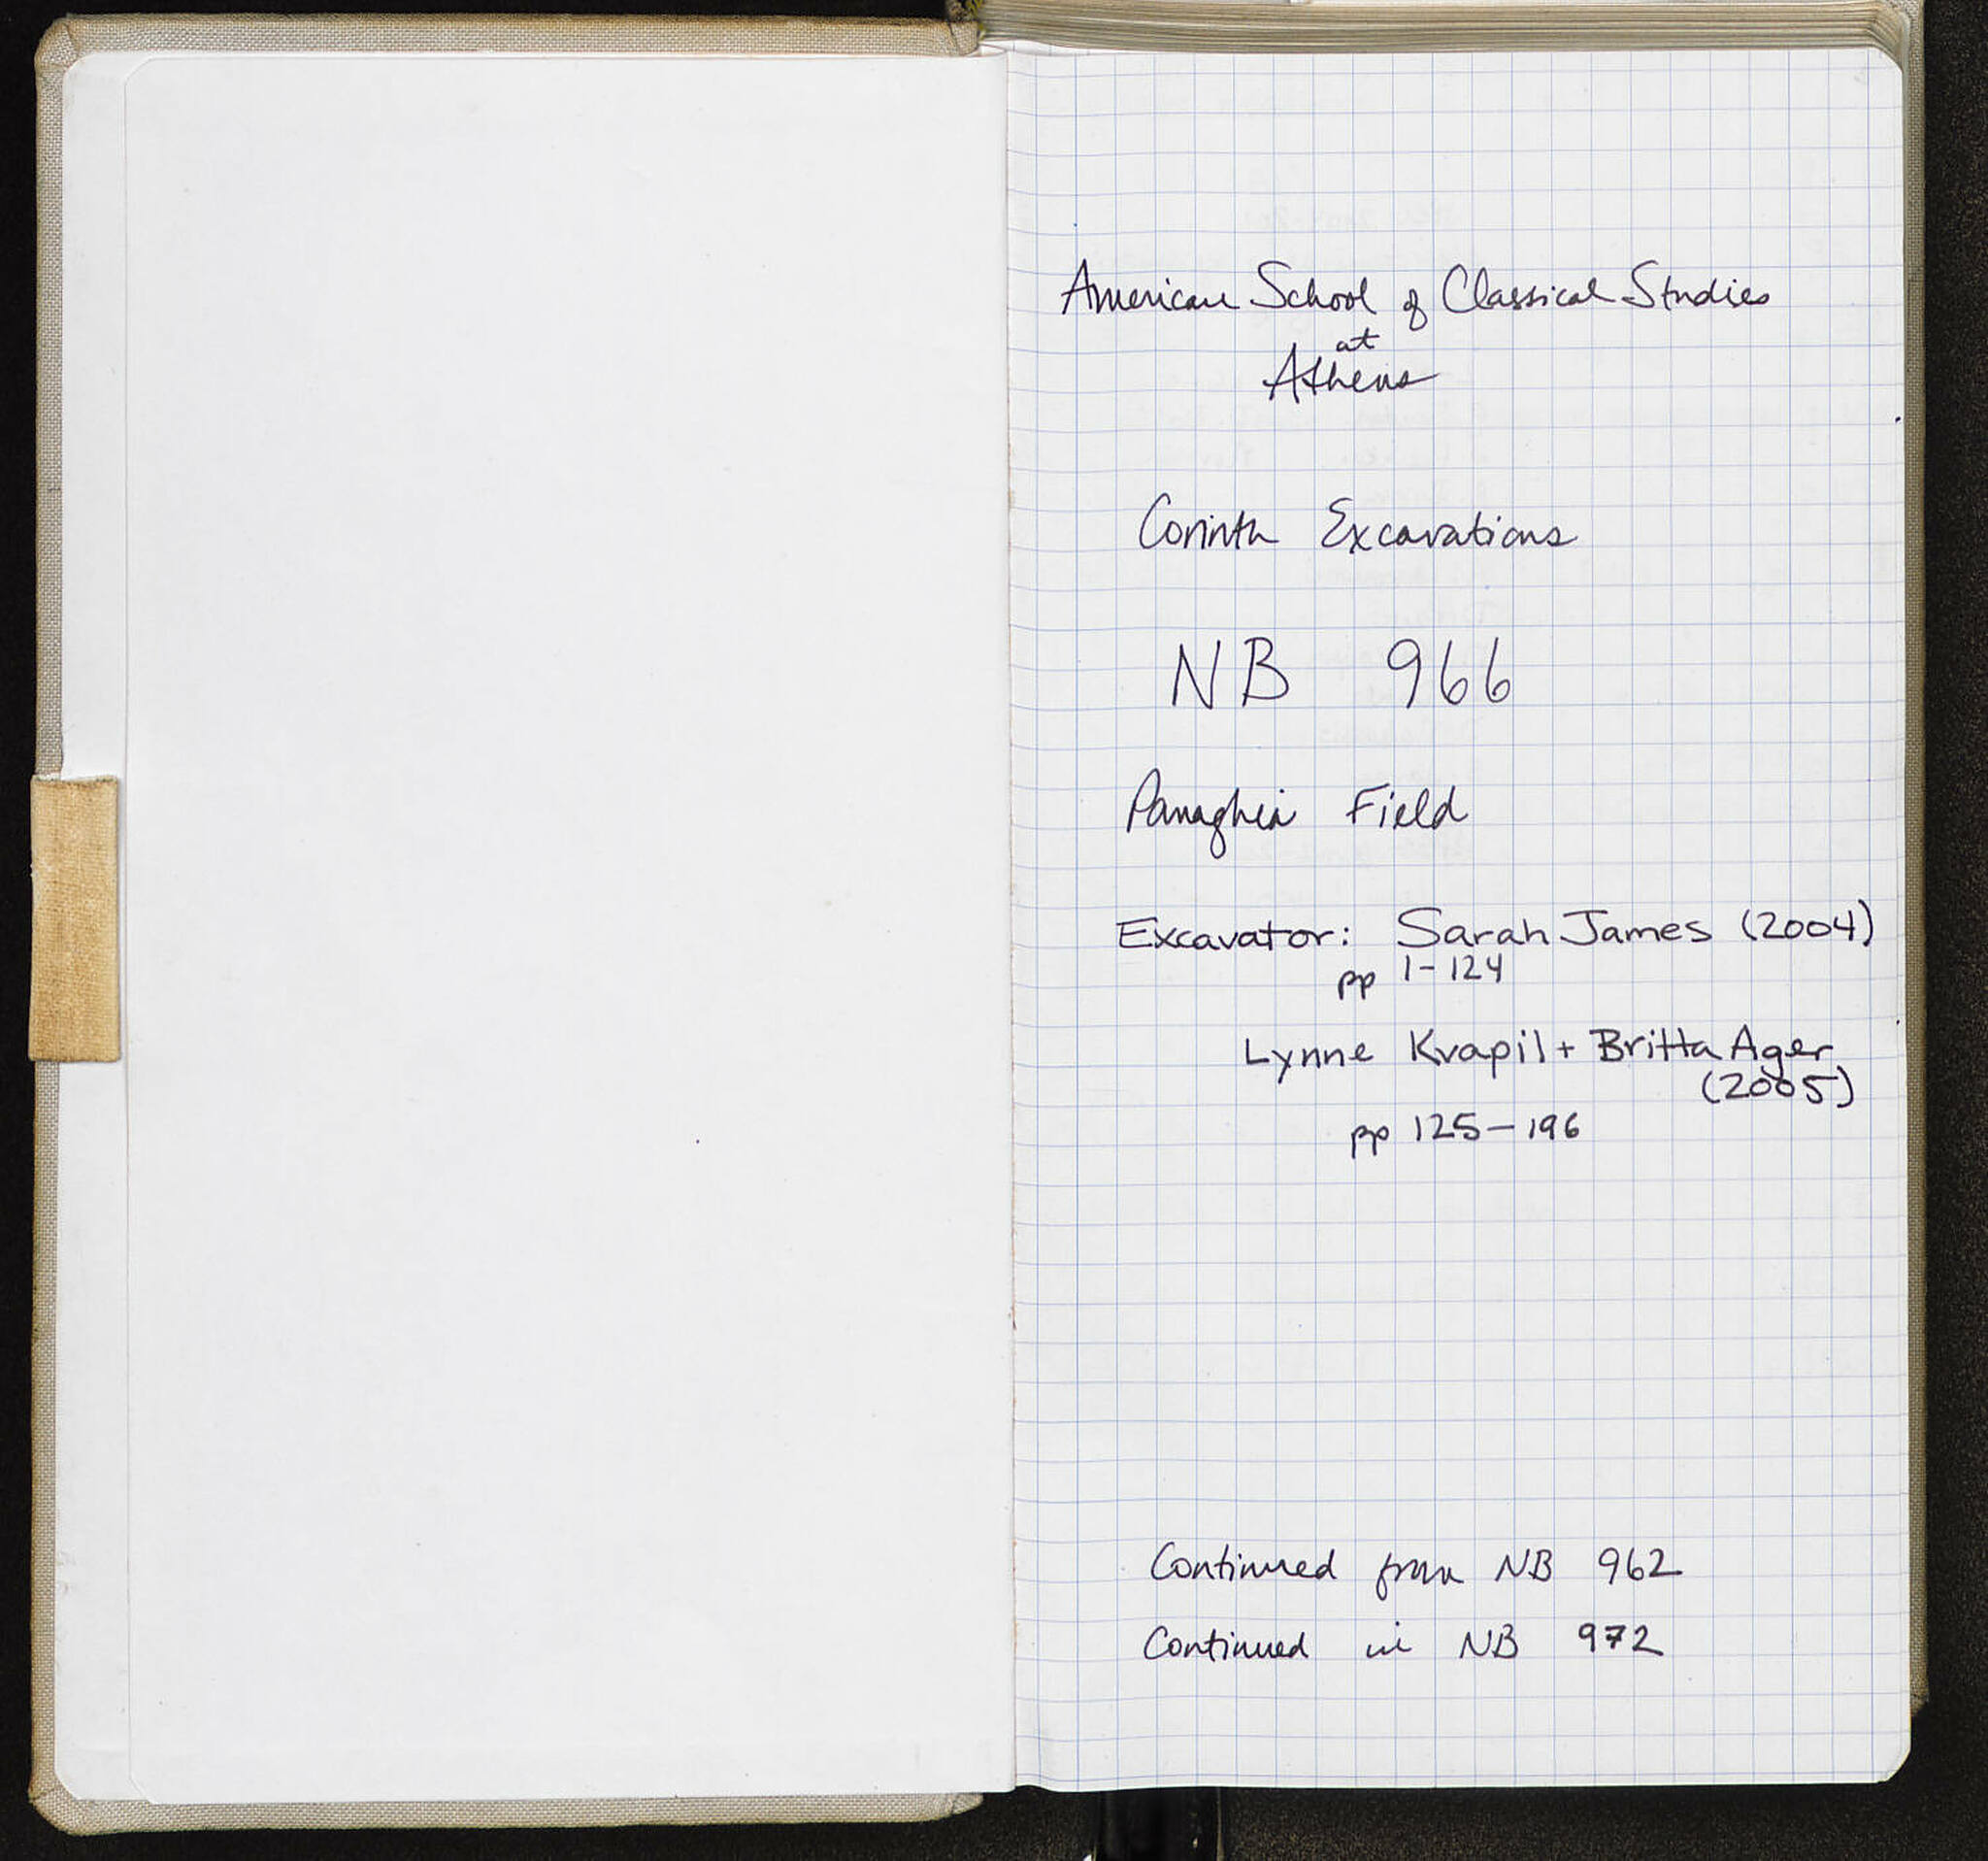 American School of Classical Studies
at
Athens
Corinth Excavations
NB 966
Panaghia Field
Excavator: Sarah James (2004)
pp 1-124
Lynne Kvapil + Britta Ager
(2005)
pp 125-196
Continued from NB 962
Continued in NB 972